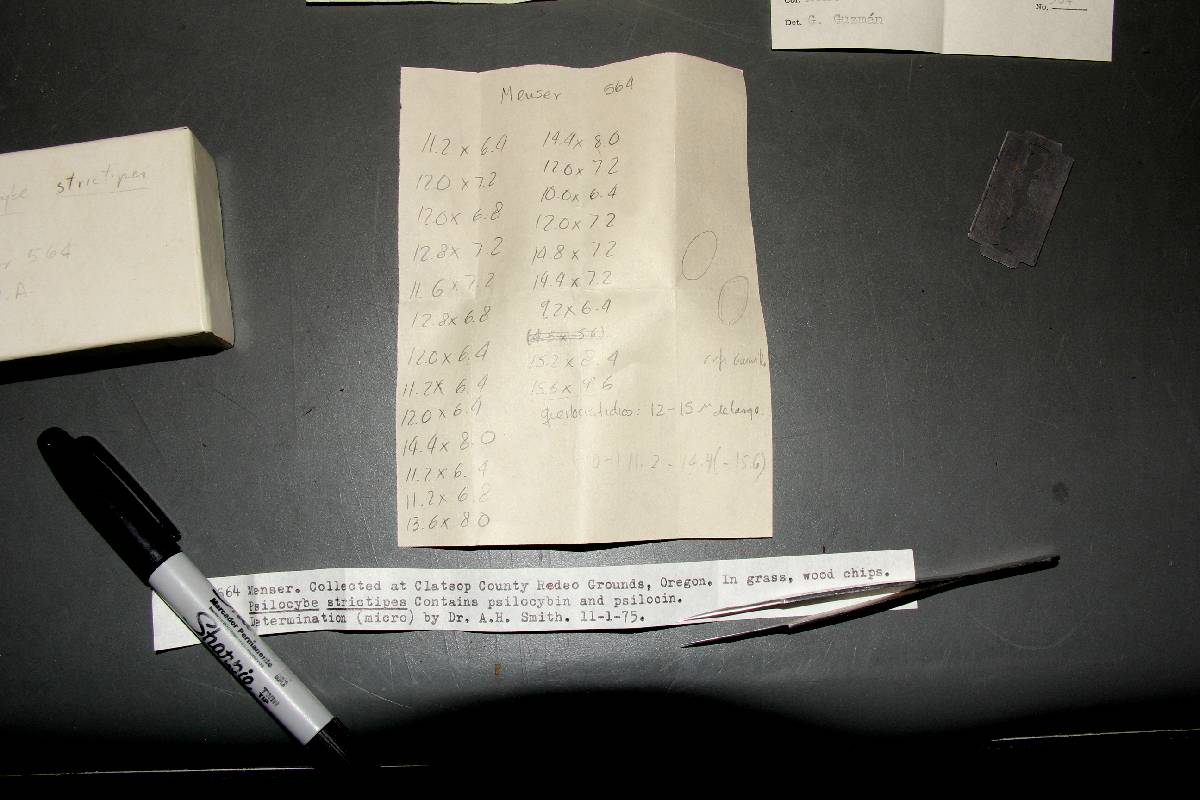 Det. G. Guzmán
No.
strictipes
564
.A
Menser 564
11.2 x 6.4
12.0 x 7.2
12.0 x 6.8
12.8 x 7.2
11.6 x 7.2
12.8 x 6.8
12.0 x 6.4
11.2 x 6.4
12.0 x 6.4
14.4 x 8.0
11.2 x 6.4
11.2 x 6.8
13.6 x 8.0
14.4 x 8.0
12.0 x 7.2
10.0 x 6.4
12.0 x 7.2
14.8 x 7.2
14.4 x 7.2
9.2 x 6.4
15.2 x 8.4
15.6 x 9.6
12-15 μ de largo.
11.2 - 14.4 (-15.6)
564 Menser. Collected at Clatsop County Rodeo Grounds, Oregon. In grass, wood chips.
Psilocybe strictipes Contains psilocybin and psilocin.
Determination (micro) by Dr. A.H. Smith. 11-1-75.
Marcador Permanente
Sharpie